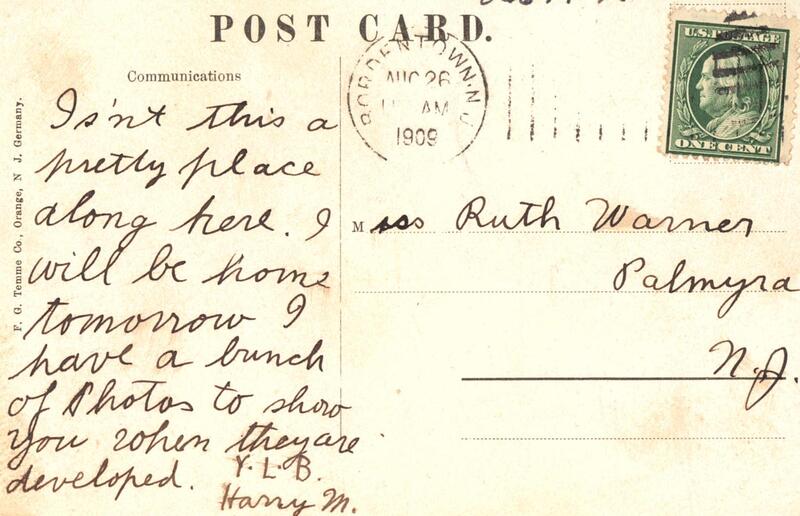 POST CARD.
Communications
Isn't this a
pretty place
along here. I
will be home
tomorrow I
have a bunch
of Photos to show
you when they are
developed.
Y.L.B.
Harry M.
F. G. Temme Co., Orange, N J, Germany.
BORDENTOWN N J
AUG 26
AM
1909
U.S. POSTAGE
ONE CENT
Miss Ruth Warner
Palmyra
N.J.